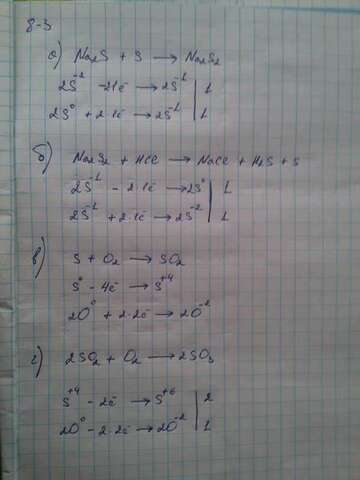 8-3
а) Na₂S + S → Na₂S₂
2S⁻² - 2·1ē → 2S⁻¹ | 1
2S⁰ + 2·1ē → 2S⁻¹ | 1
б) Na₂S₂ + HCl → NaCl + H₂S + S
2S⁻¹ - 2·1ē → 2S⁰ | 1
2S⁻¹ + 2·1ē → 2S⁻² | 1
в) S + O₂ → SO₂
S⁰ - 4ē → S⁺⁴
2O⁰ + 2·2ē → 2O⁻²
г) 2SO₂ + O₂ → 2SO₃
S⁺⁴ - 2ē → S⁺⁶ | 2
2O⁰ - 2·2ē → 2O⁻² | 1